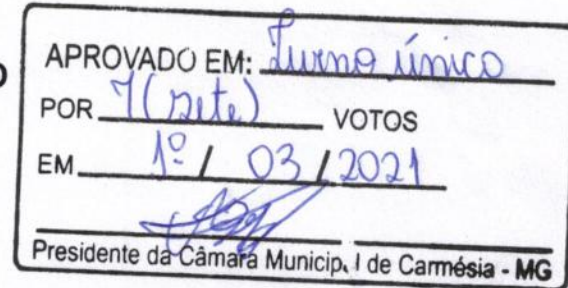 APROVADO EM: Turno único
POR 7 (sete) VOTOS
EM 1º / 03 / 2021
Presidente da Câmara Municip. l de Carmésia - MG